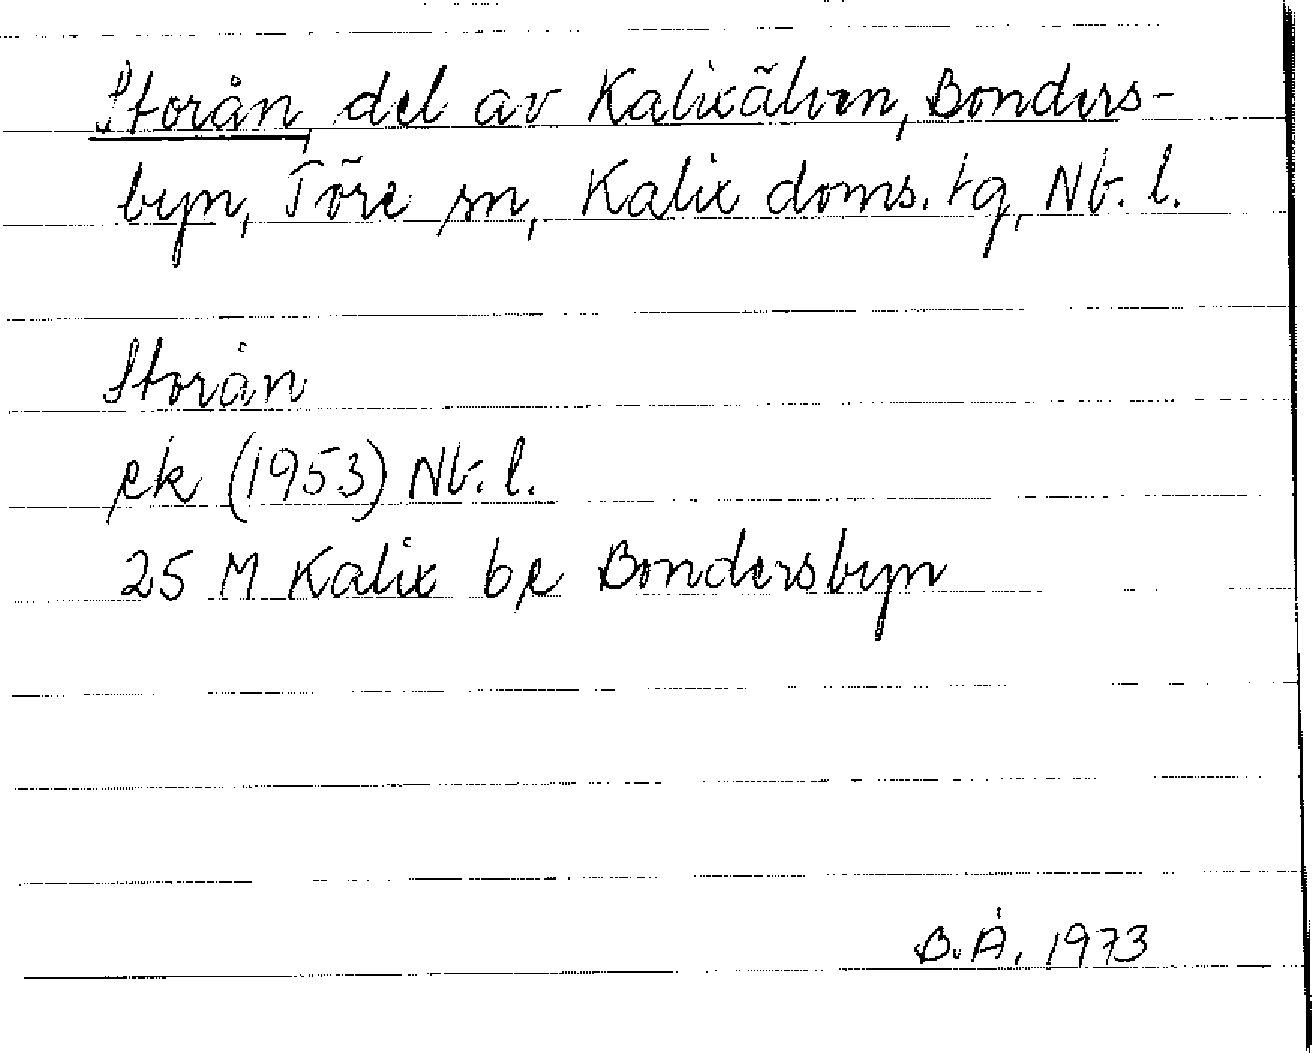 Storån, del av Kalixälven, Bonders-
byn, Töre sn, Kalix doms. tg, Nb. l.
Storån
ek (1953) Nb. l.
25 M Kalix be Bondersbyn
B.Å. 1973